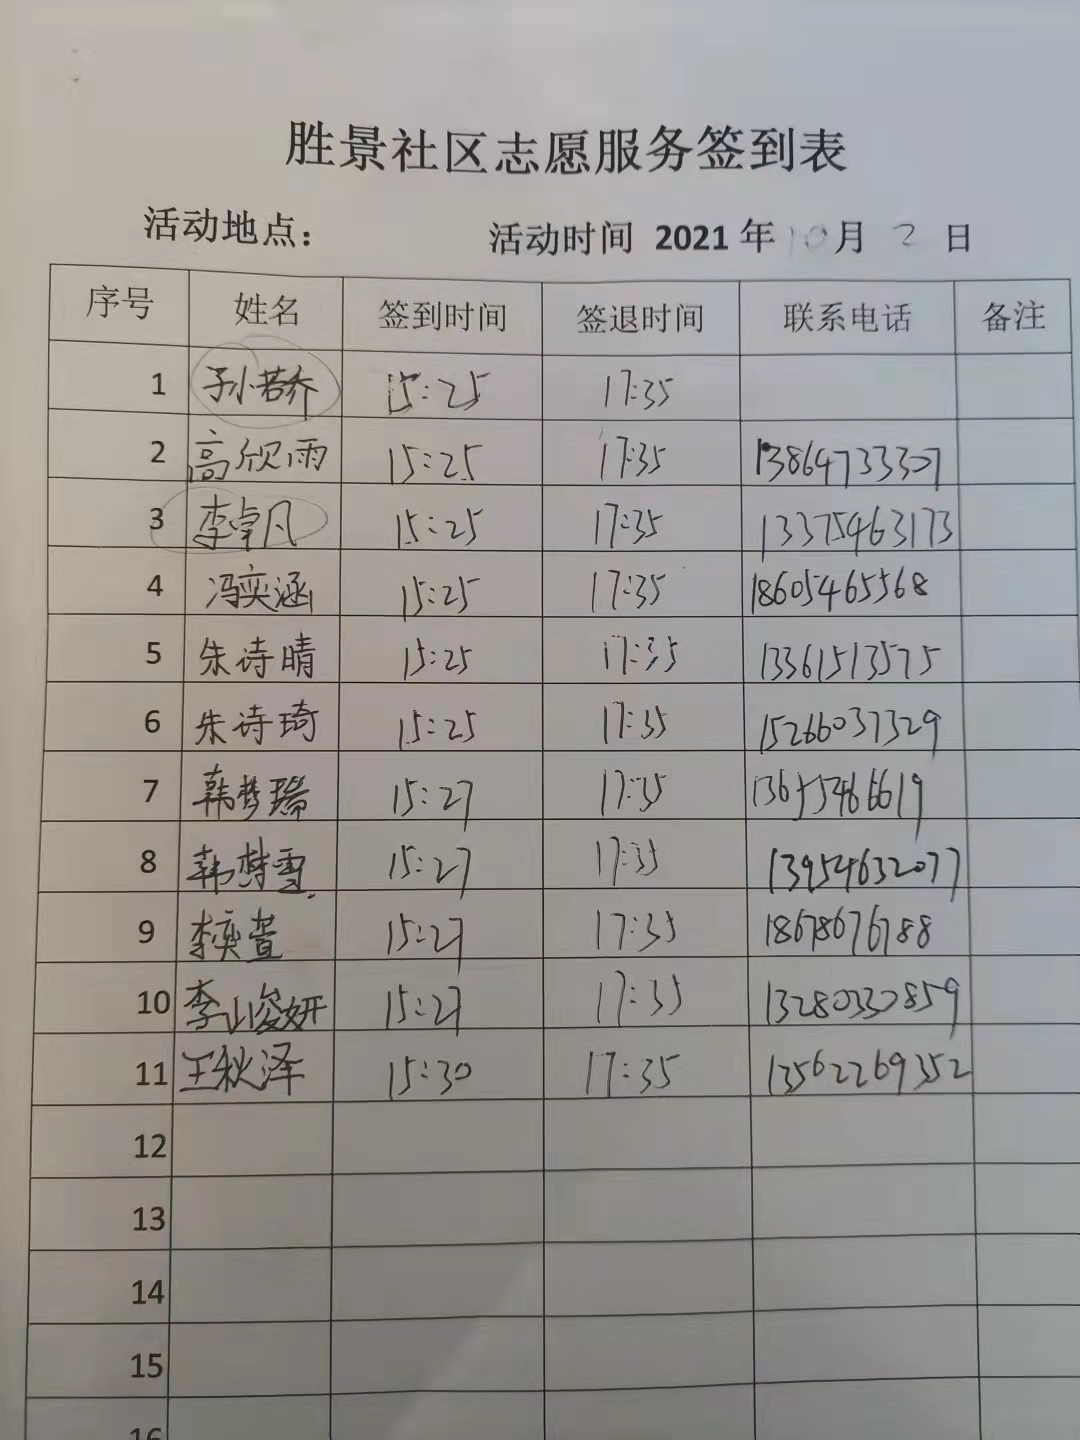 胜景社区志愿服务签到表
活动地点： 活动时间 2021 年 10 月 2 日
序号 姓名 签到时间 签退时间 联系电话 备注
1 孙若乔 15:25 17:35
2 高欣雨 15:25 17:35 13864733307
3 李卓凡 15:25 17:35 13375463173
4 冯奕涵 15:25 17:35 18605465568
5 朱诗晴 15:25 17:35 13361513575
6 朱诗琦 15:25 17:35 15266037329
7 韩梦瑶 15:27 17:35 13655466619
8 韩梦雪 15:27 17:35 13954632077
9 李奕萱 15:27 17:35 18678676788
10 李峻妍 15:27 17:35 13280330859
11 王秋泽 15:30 17:35 13562269352
12
13
14
15
16